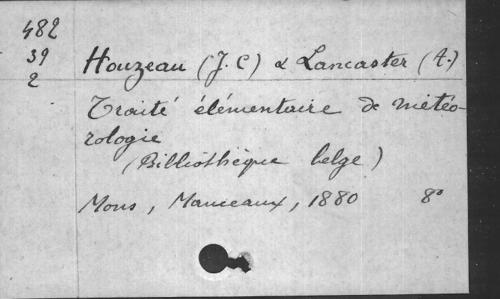 482
39
2
Houzeau (J. C) & Lancaster (A.)
Traité élémentaire de météo-
rologie
(Bibliothèque belge)
Mons, Manceaux, 1880 8°